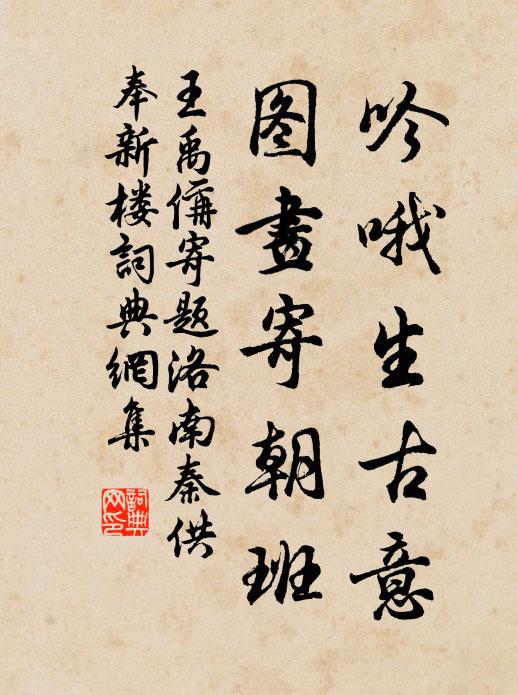 吟哦生古意
图畫寄朝班
王禹偁寄题洛南秦供
奉新楼詞典網集
詞典網印